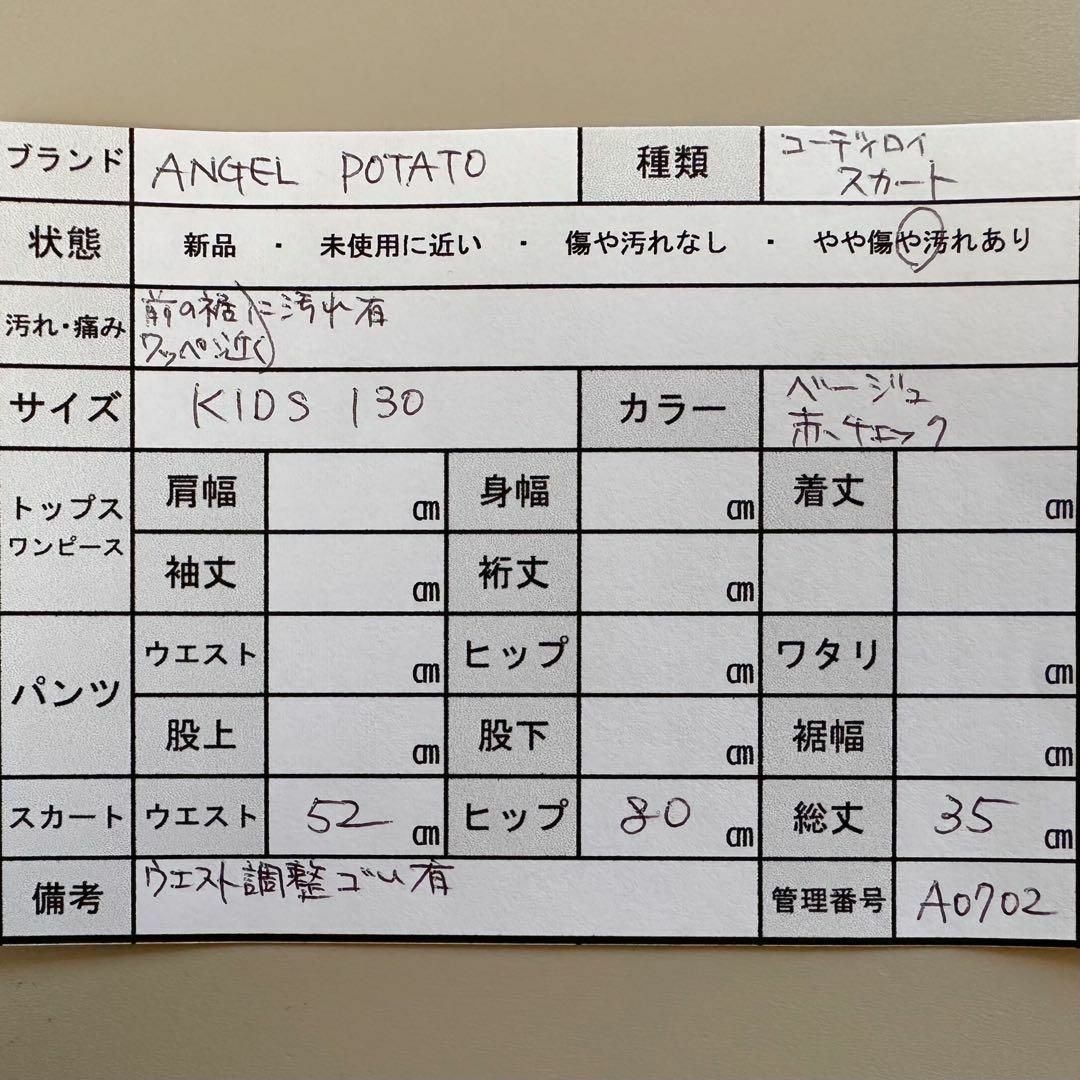 ブランド ANGEL POTATO 種類 コーディロイ
スカート
状態 新品 ・ 未使用に近い ・ 傷や汚れなし ・ やや傷や汚れあり
汚れ・痛み 前の裾に汚れ有
ワッペン近く
サイズ KIDS 130 カラー ベージュ
赤チェック
トップス
ワンピース
肩幅 cm 身幅 cm 着丈 cm
袖丈 cm 裄丈 cm
パンツ
ウエスト cm ヒップ cm ワタリ cm
股上 cm 股下 cm 裾幅 cm
スカート ウエスト 52 cm ヒップ 80 cm 総丈 35 cm
備考 ウエスト調整ゴム有 管理番号 A0702